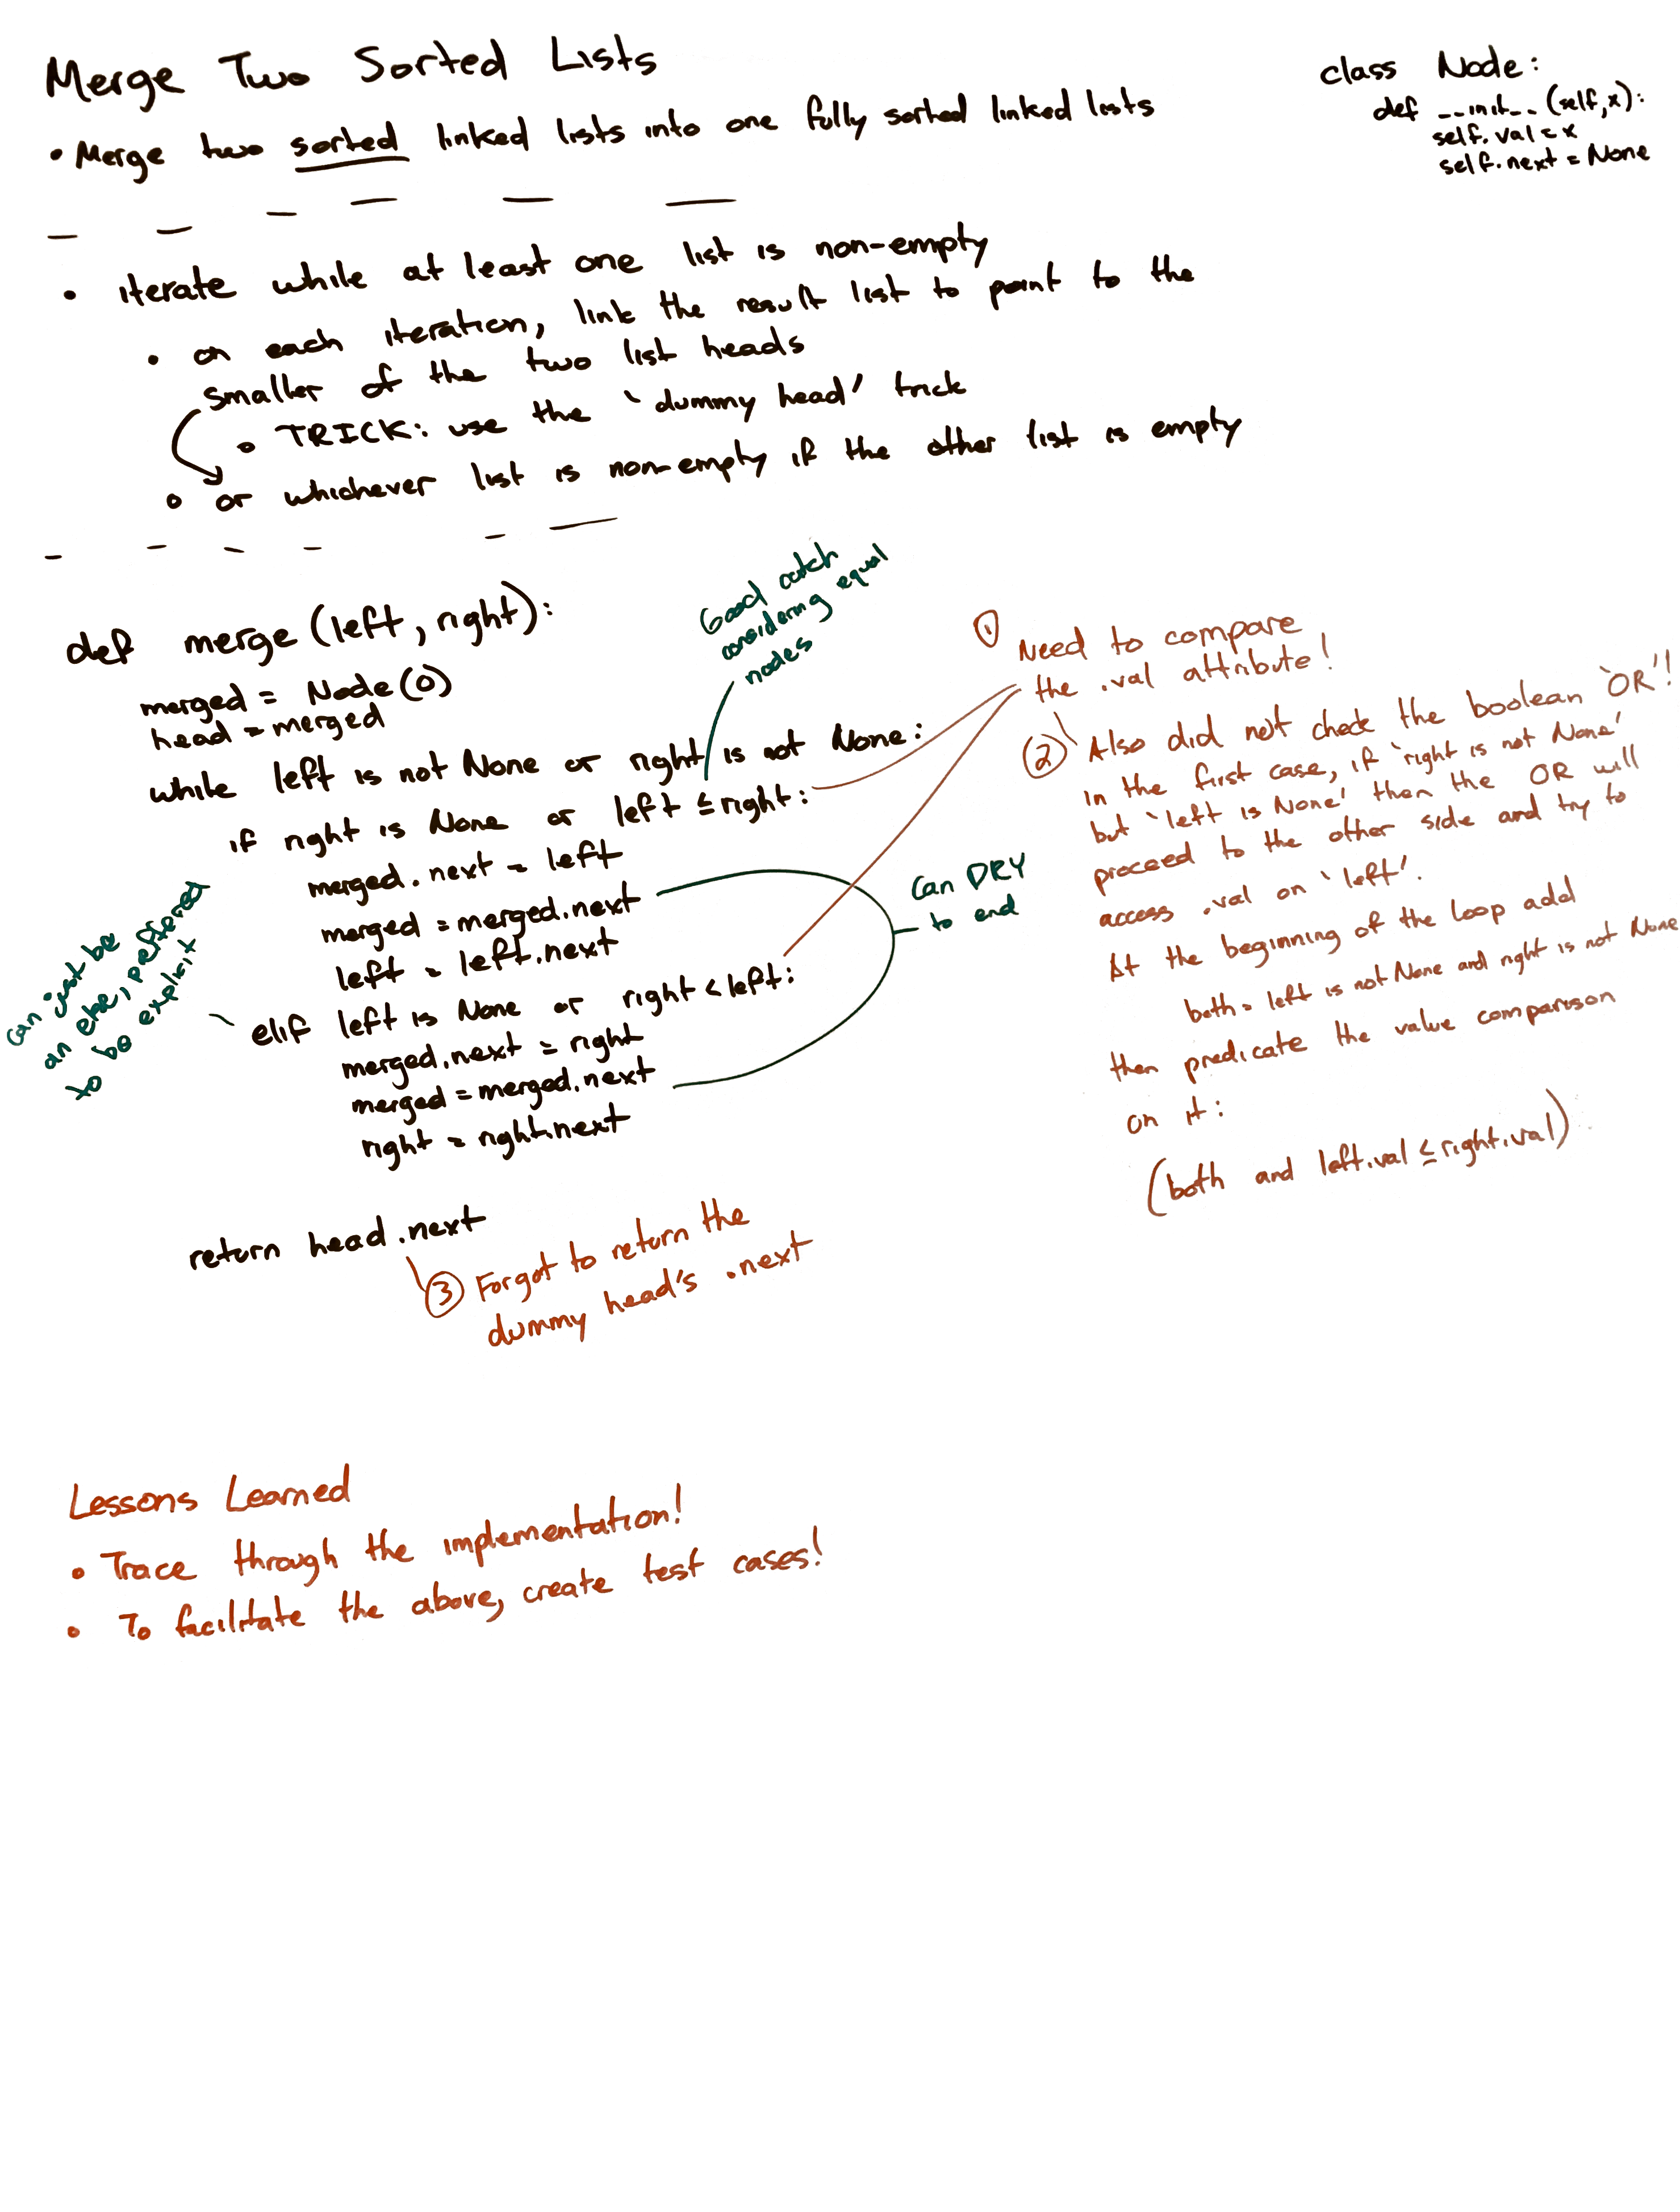 Merge Two Sorted Lists
• Merge two sorted linked lists into one fully sorted linked lists
class Node:
def __init__(self,x):
self.val = x
self.next = None
• iterate while at least one list is non-empty
• on each iteration, link the result list to point to the
smaller of the two list heads
• TRICK: use the `dummy head' trick
• or whichever list is non-empty if the other list is empty
def merge(left, right):
merged = Node(0)
head = merged
while left is not None or right is not None:
if right is None or left ≤ right:
merged.next = left
merged = merged.next
left = left.next
elif left is None or right < left:
merged.next = right
merged = merged.next
right = right.next
return head.next
Good catch
considering equal
nodes
can just be
an else, preffered
to be explicit
Can DRY
to end
① Need to compare
the .val attribute!
② Also did not check the boolean `OR'!
in the first case, if `right is not None'
but `left is None' then the OR will
proceed to the other side and try to
access .val on `left'.
At the beginning of the loop add
both = left is not None and right is not None
then predicate the value comparison
on it:
(both and left.val ≤ right.val)
③ Forgot to return the
dummy head's .next
Lessons Learned
• Trace through the implementation!
• To facilitate the above, create test cases!